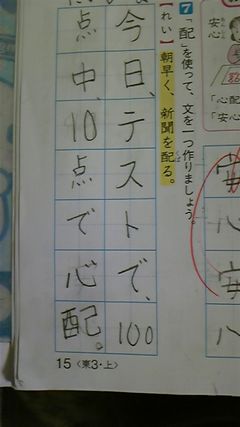 7「配」を使って、文を一つ作りましょう。
【れい】朝早く、新聞を配る。
今日、テストで、100
点中、10点で心配。
安心
安心
「心配
「安心
15〈東3・上〉